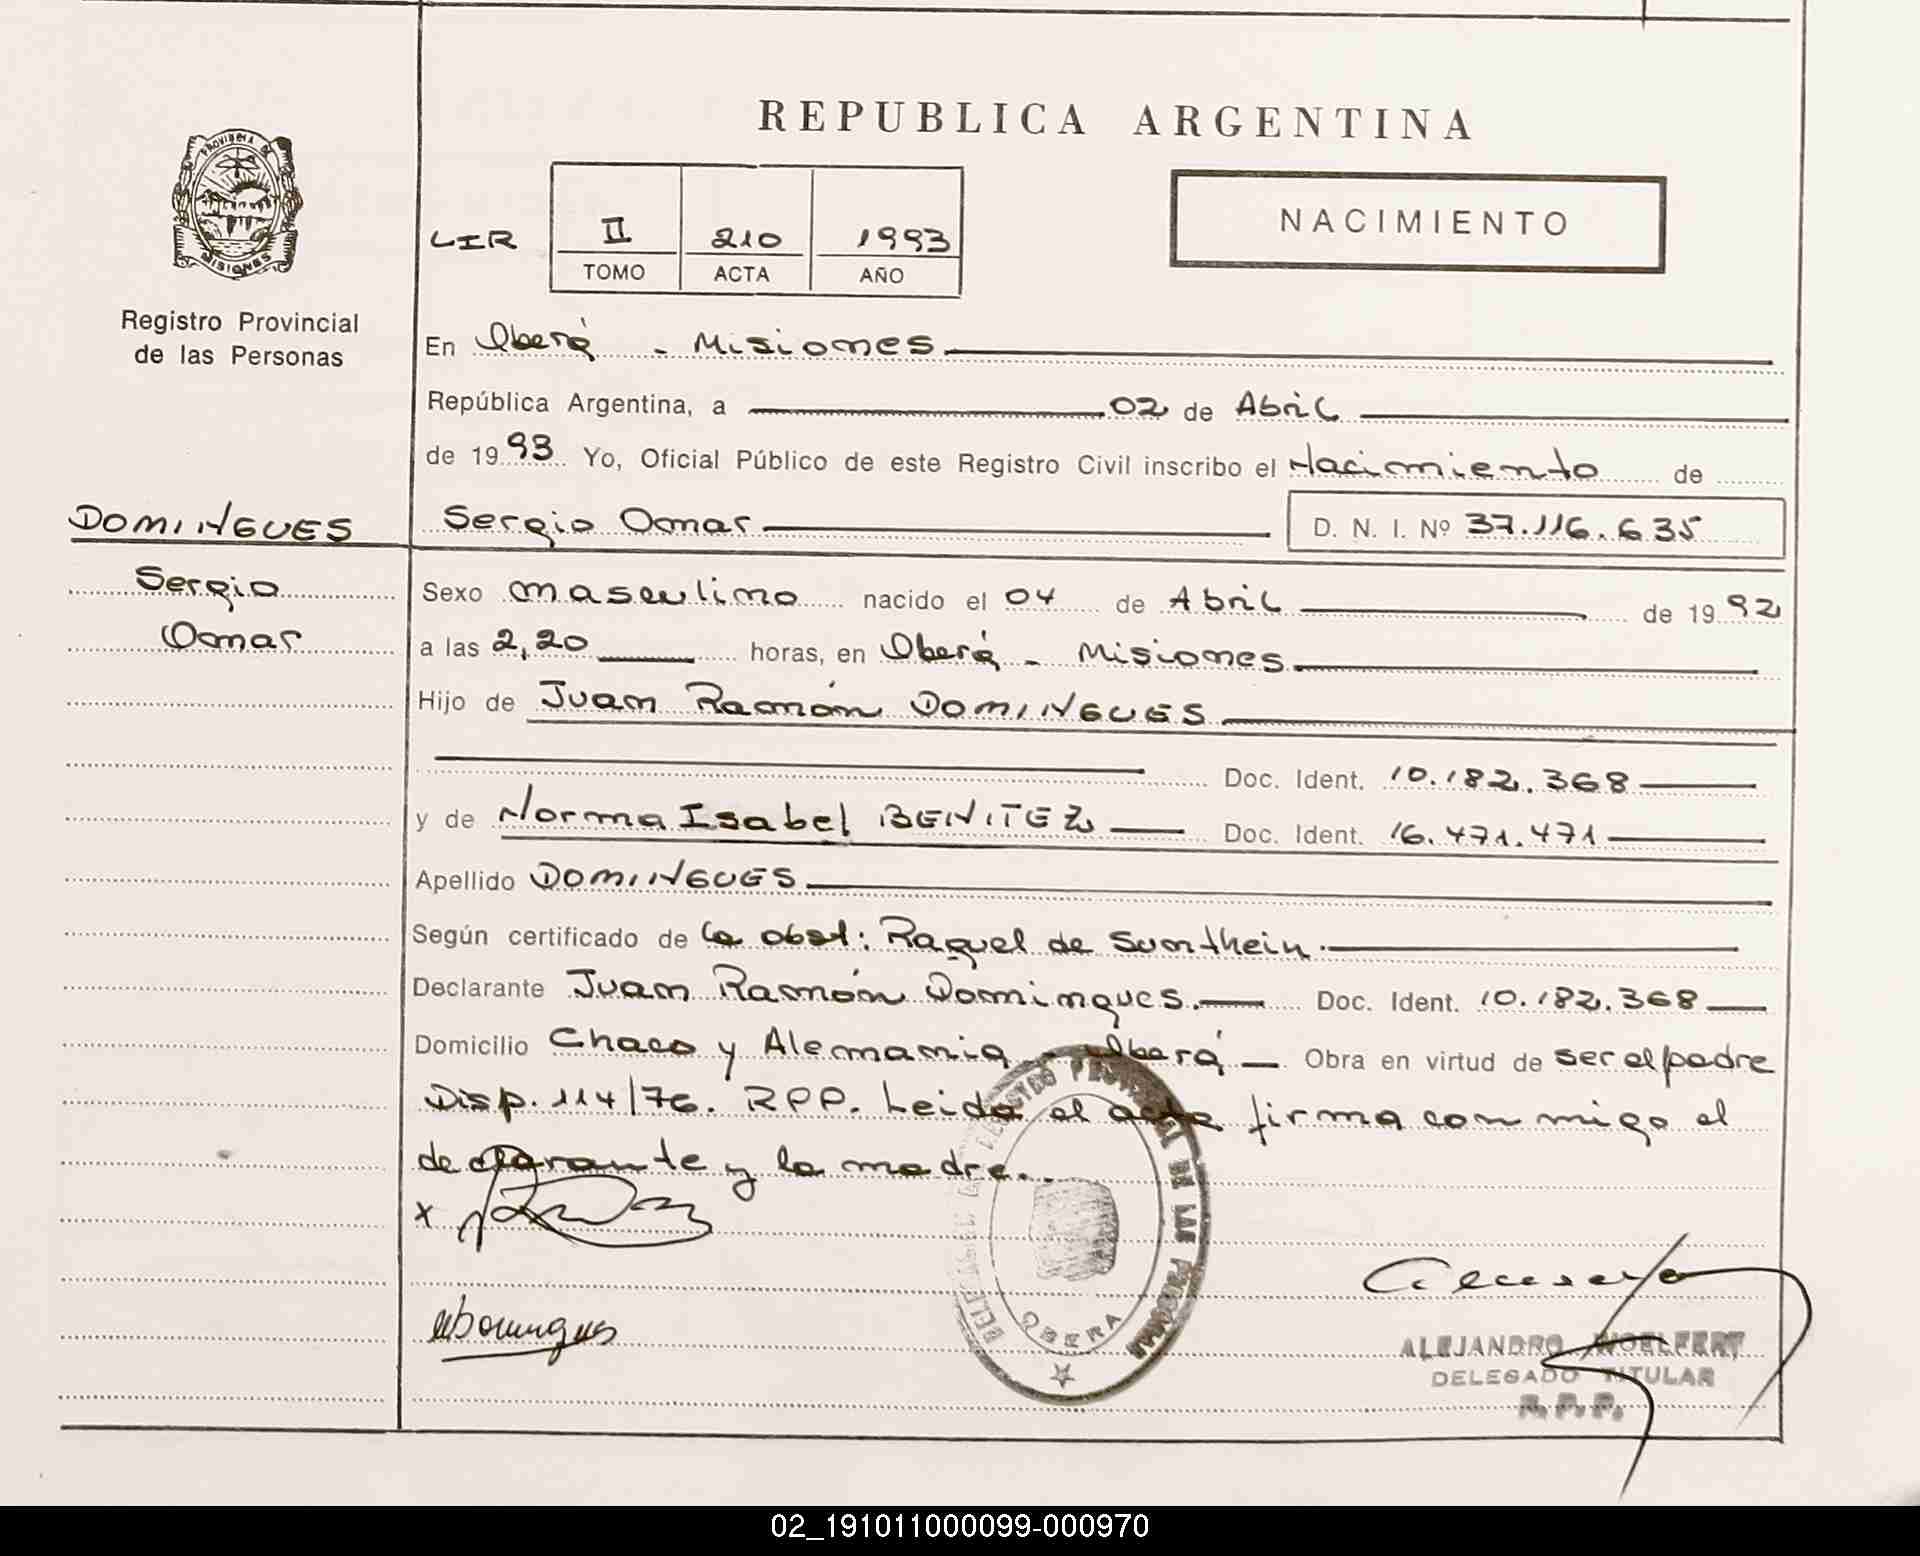 REPUBLICA ARGENTINA
PROVINCIA DE
MISIONES
Registro Provincial
de las Personas
LIR II 210 1993
TOMO ACTA AÑO
NACIMIENTO
En Oberá - Misiones
República Argentina, a 02 de Abril
de 1993 Yo, Oficial Público de este Registro Civil inscribo el Nacimiento de
DOMINGUES
Sergio Omar D. N. I. Nº 37.116.635
Sergio
Omar
Sexo masculino nacido el 04 de Abril de 1992
a las 2,20 horas, en Oberá - Misiones
Hijo de Juan Ramón DOMINGUES
Doc. Ident. 10.182.368
y de Norma Isabel BENITEZ Doc. Ident. 16.471.471
Apellido DOMINGUES
Según certificado de la obst: Raquel de
Declarante Juan Ramón Domingues. Doc. Ident. 10.182.368
Domicilio Chaco y Alemania - Oberá Obra en virtud de ser el padre
Disp. 114/76. RPP. Leida el acta firma conmigo el
declarante y la madre.
x
DE LAS PERSONAS
OBERA
ALEJANDRO WOELFERT
DELEGADO TITULAR
R.P.P.
02_191011000099-000970